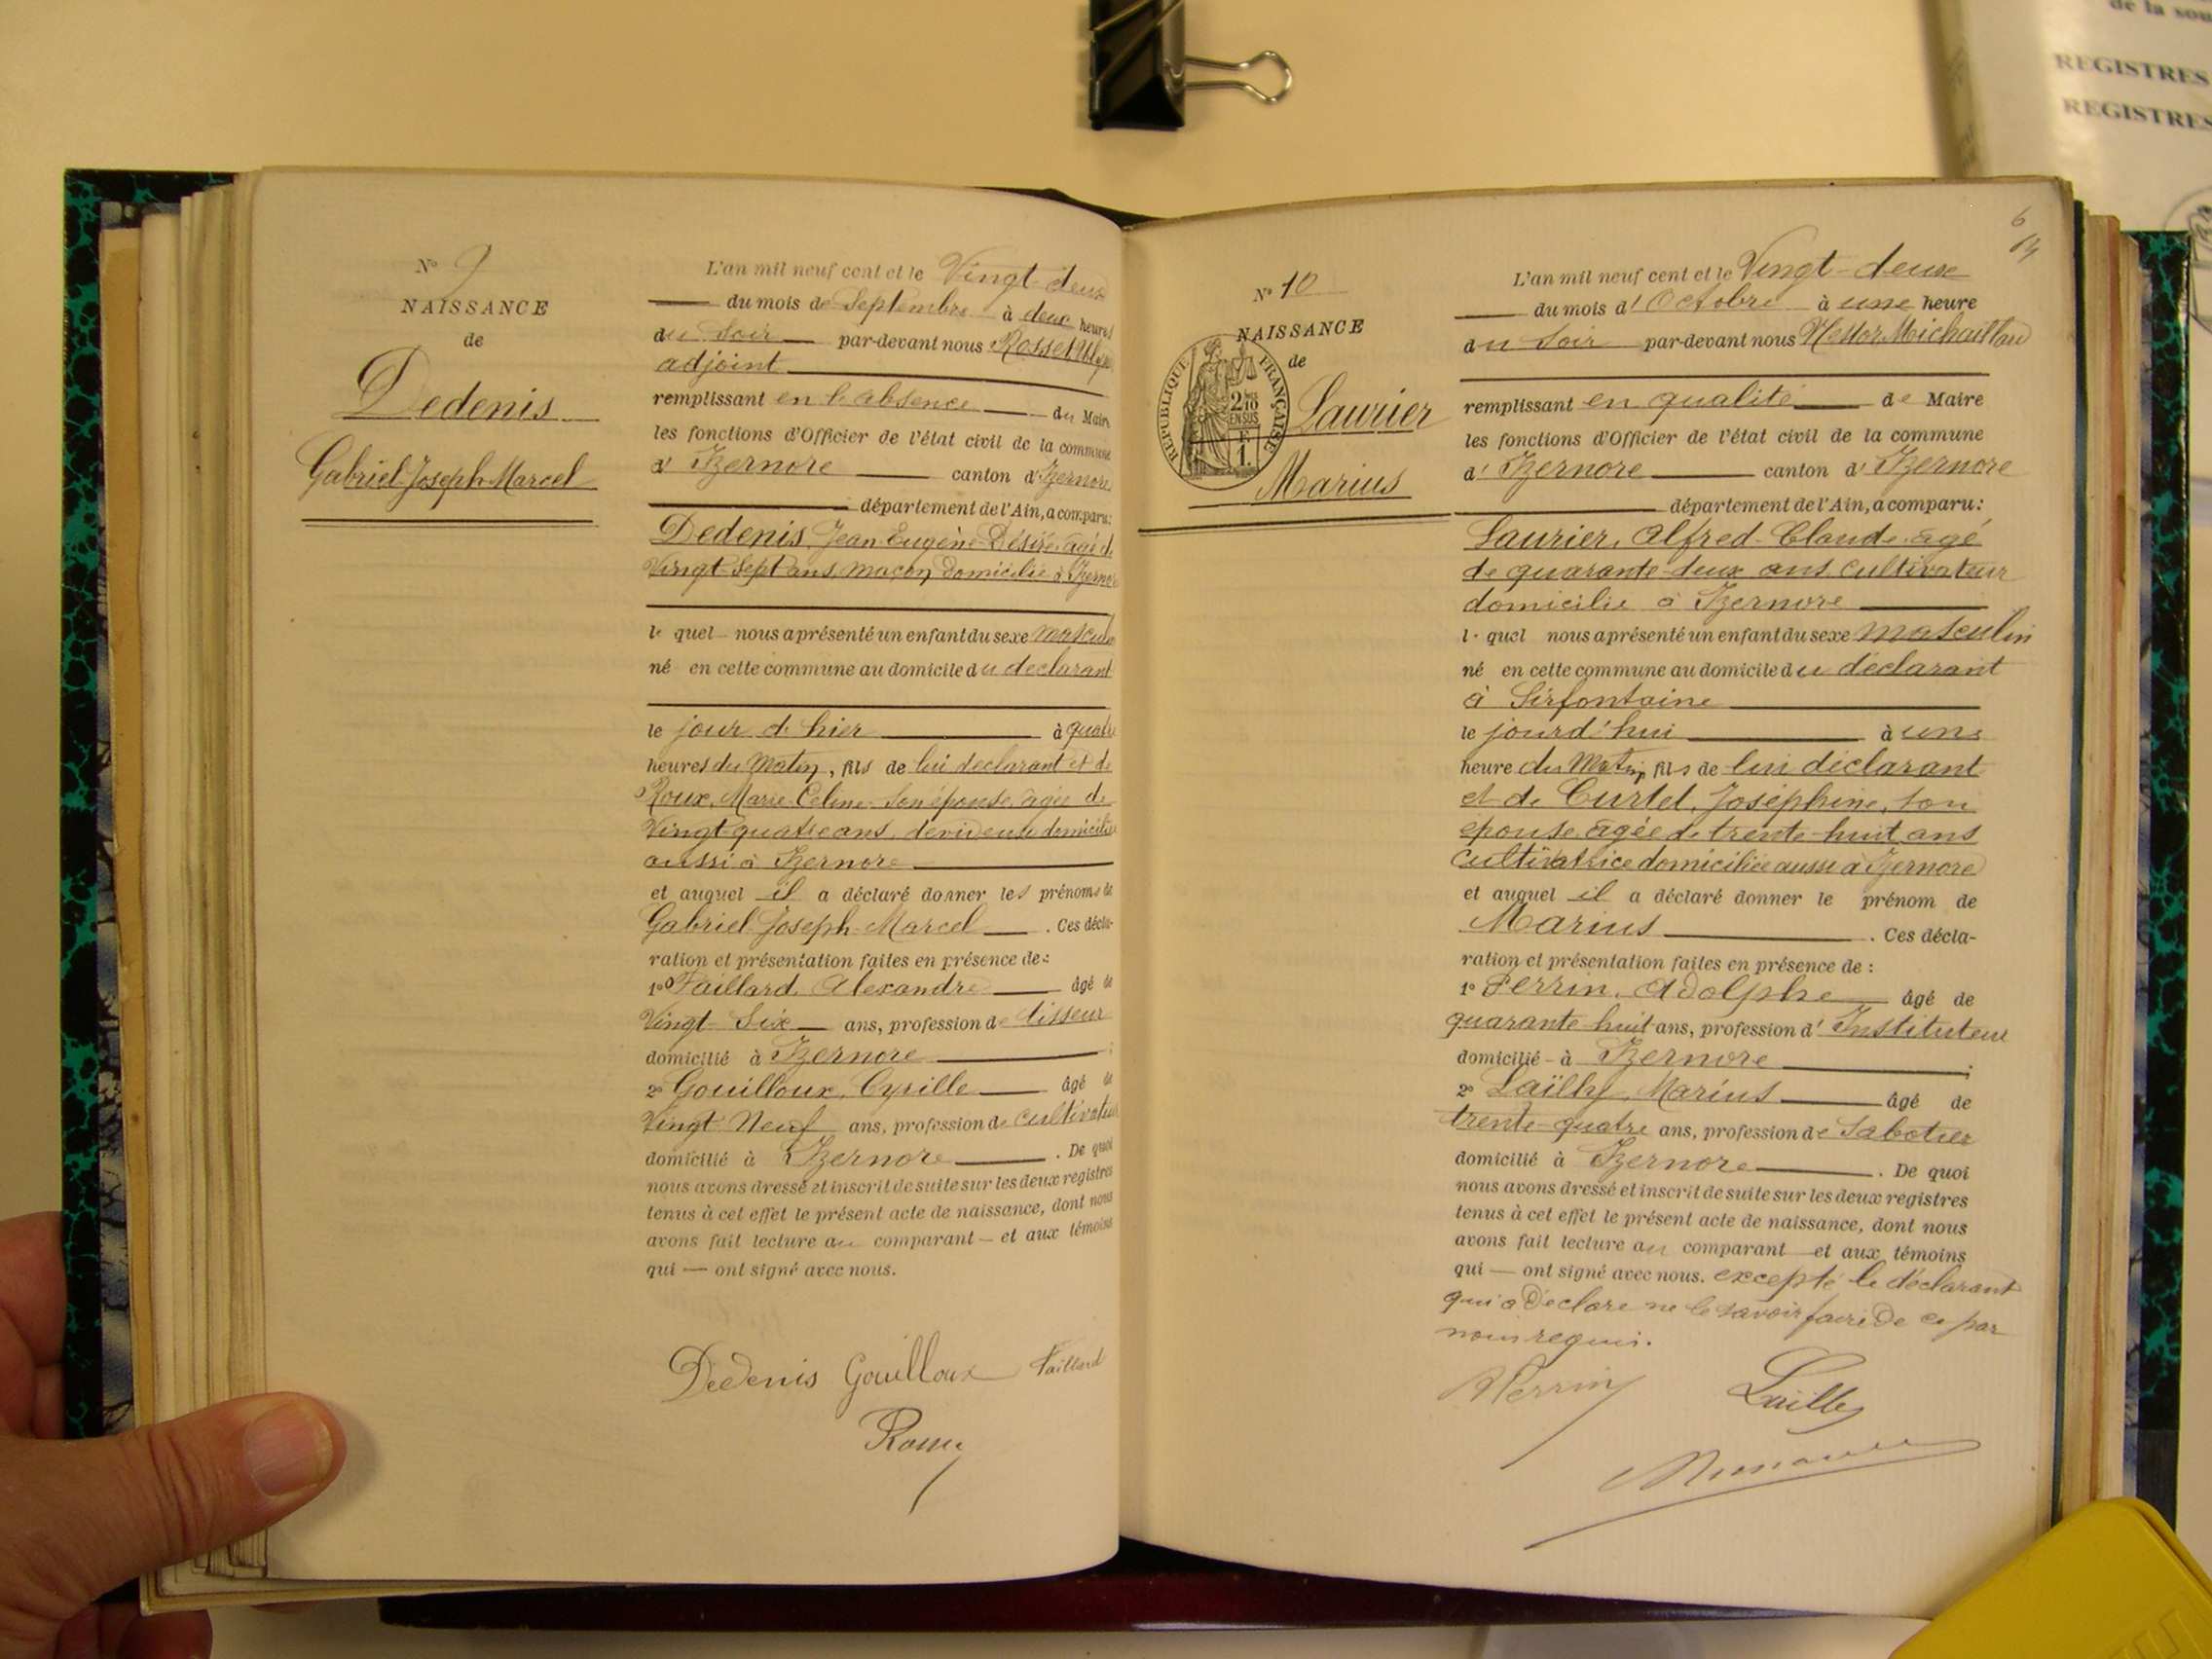 de la sou
REGISTRES
REGISTRES
N° 9
NAISSANCE
de
Dedenis
Gabriel Joseph Marcel
L'an mil neuf cent et le Vingt-deux
du mois de Septembre à deux heures
du Soir par-devant nous
adjoint
remplissant en l'absence du Maire
les fonctions d'Officier de l'état civil de la commune
d' Izernore canton d' Izernore
département de l'Ain, a comparu:
Dedenis, Jean Eugène Désiré, âgé de
Vingt Sept ans, maçon, domicilié à Izernore
le quel nous a présenté un enfant du sexe masculin
né en cette commune au domicile du déclarant
le jour d'hier à quatre
heures du Matin, fils de lui déclarant et de
Roux, Marie Celine, son épouse, âgée de
Vingt-quatre ans, dévideuse domiciliée
aussi à Izernore
et auquel il a déclaré donner les prénoms de
Gabriel Joseph Marcel. Ces décla-
ration et présentation faites en présence de :
1° Faillard, Alexandre âgé de
Vingt Six ans, profession de tisseur
domicilié à Izernore ;
2° Gouilloux, Cyrille âgé de
Vingt Neuf ans, profession de cultivateur
domicilié à Izernore. De quoi
nous avons dressé et inscrit de suite sur les deux registres
tenus à cet effet le présent acte de naissance, dont nous
avons fait lecture au comparant et aux témoins
qui — ont signé avec nous.
Dedenis Gouilloux Faillard
N° 10
NAISSANCE
de
REPUBLIQUE FRANÇAISE
2/10
EN SUS
F.
1.
Laurier
Marius
6
L'an mil neuf cent et le Vingt-deux
du mois d'Octobre à une heure
du Soir par-devant nous Hector Michaillard
remplissant en qualité de Maire
les fonctions d'Officier de l'état civil de la commune
d' Izernore canton d' Izernore
département de l'Ain, a comparu:
Laurier, Alfred-Claude, âgé
de quarante-deux ans, cultivateur
domicilié à Izernore
le quel nous a présenté un enfant du sexe masculin
né en cette commune au domicile du déclarant
à Sirfontaine
le jourd'hui à une
heure du Matin, fils de lui déclarant
et de Curtet, Joséphine, son
épouse, âgée de trente-huit ans
cultivatrice domiciliée aussi à Izernore
et auquel il a déclaré donner le prénom de
Marius. Ces décla-
ration et présentation faites en présence de :
1° Perrin, Adolphe âgé de
quarante huit ans, profession d'Instituteur
domicilié à Izernore ;
2° Lailly, Marius âgé de
trente-quatre ans, profession de Sabotier
domicilié à Izernore. De quoi
nous avons dressé et inscrit de suite sur les deux registres
tenus à cet effet le présent acte de naissance, dont nous
avons fait lecture au comparant et aux témoins
qui — ont signé avec nous. excepté le déclarant
qui a déclaré ne le savoir faire De ce par
nous requis.
Perrin Lailly